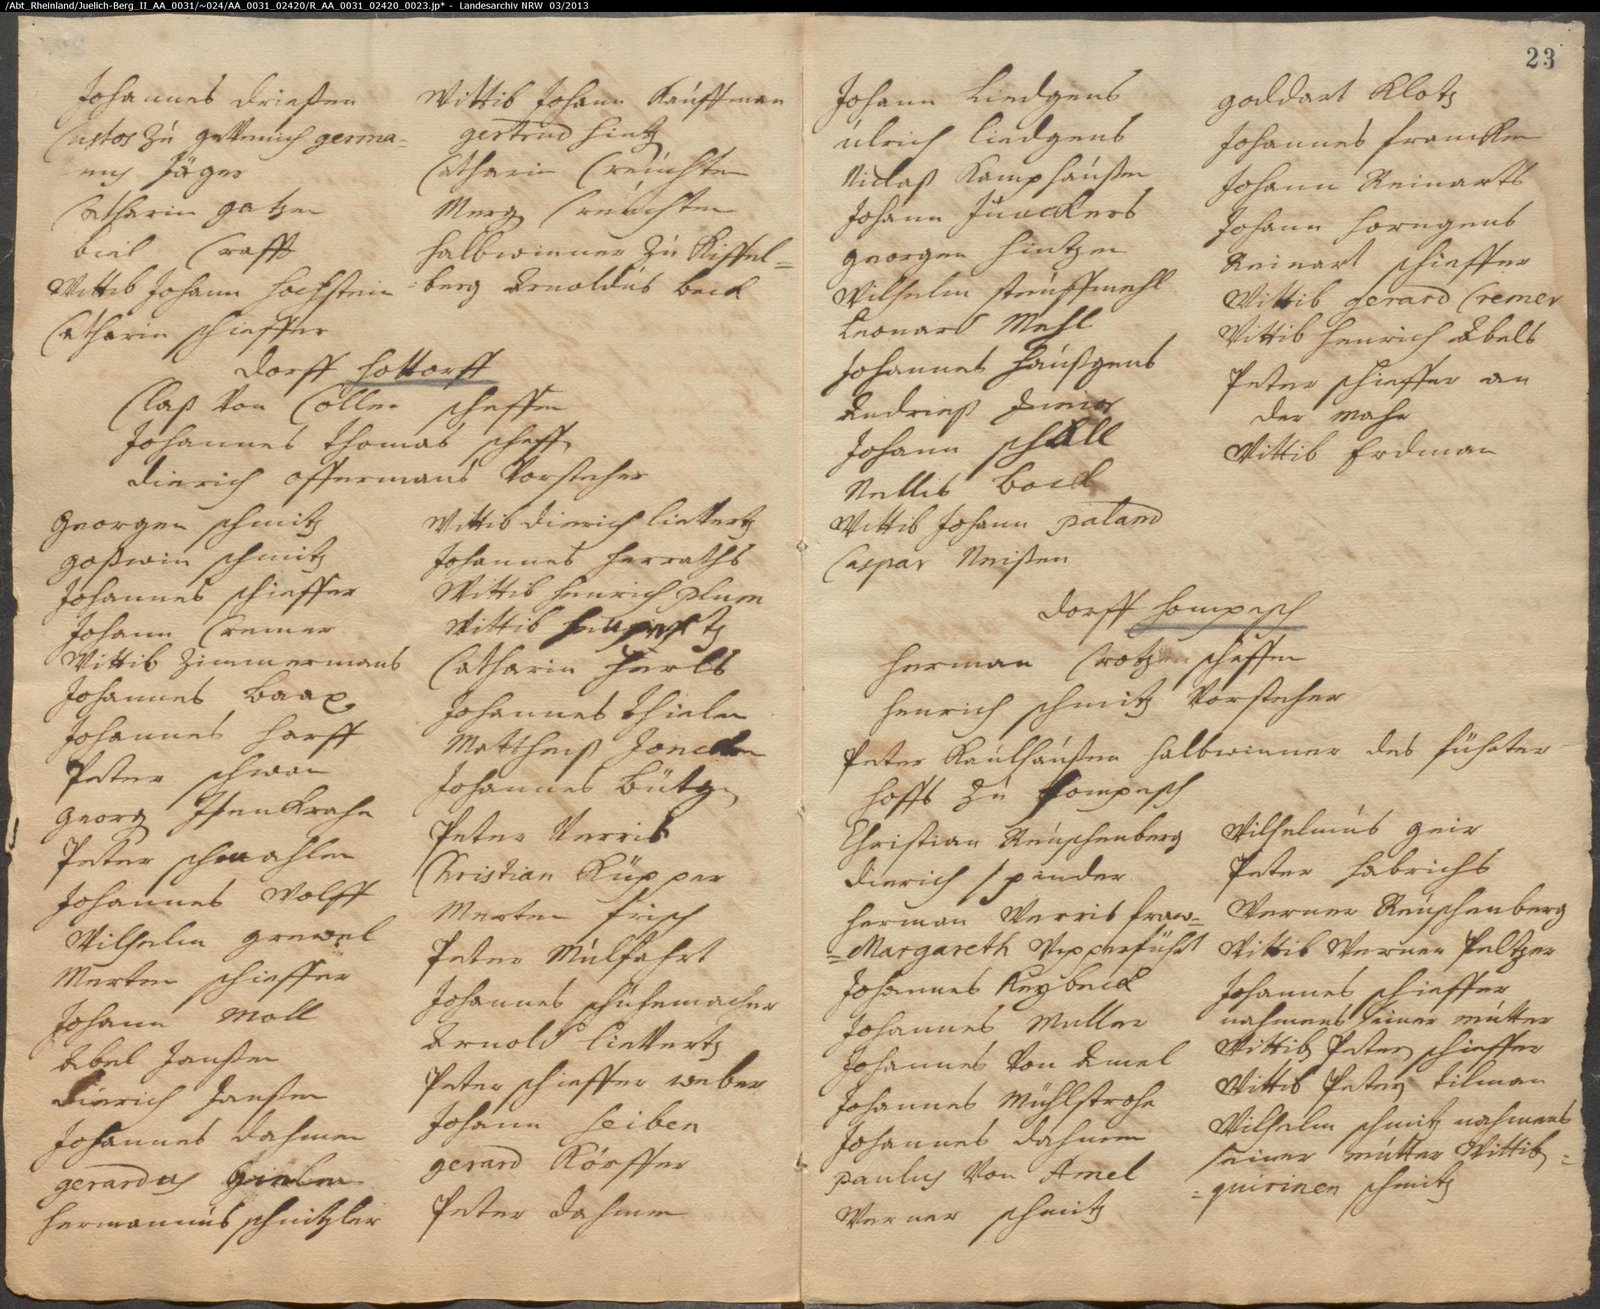 /Abt_Rheinland/Juelich-Berg_II_AA_0031/~024/AA_0031_02420/R_AA_0031_02420_0023.jp* - Landesarchiv NRW 03/2013
23
Johannes Drießen
Custos zu gevenich germa=
nus Jäger
Catharin gatzen
beil Crafft
Wittib Johann Hochstein
Catharin schieffer
Wittib Johann Kauffman
gertrud Hintz
Catharin Creuchten
Merg Creuchten
Halbwinner zu Kiffel=
=berg Arnoldus beck
Dorff Hottorff
Claß von Collen scheffen
Johannes Thomas scheff
Dierich offermans Vorsteher
Georgen schmitz
goßwin schmitz
Johannes schieffer
Johann Cremer
Wittib Zimmermans
Johannes baax
Johannes Harff
Peter schwan
georg Isenkrahe
Peter schmahlen
Johannes Wolff
Wilhelm grewel
Merten schieffer
Johann Moll
Abel Janßen
Dierich Janßen
Johannes Dahmen
gerardus gielen
Hermannus schnitzler
Wittib Dierich lievertz
Johannes Herraths
Wittib Henrich plum
Wittib
Catharin Herls
Johannes Thielen
Mattheiß Joncken
Johannes Bütg
Peter Verris
Christian Küpper
Merten frisch
Peter Mülfahrt
Johannes schuhemacher
Arnold lievertz
Peter schieffer weber
Johann seiben
gerard Körffer
Peter Dahmen
Johann liedgens
ulrich liedgens
Niclaß Kamphaußen
Johann Junckers
georgen Hintzen
Wilhelm steuffmehl
Leonard Mehl
Johannes Haußgens
Andrieß
Johann schall
Nellis bock
Wittib Johann paland
Caspar Neißen
goddart Klotz
Johannes francken
Johann Reinarts
Johann Horngens
Reinart schieffer
Wittib gerard Cremer
Wittib Henrich Abels
Peter schieffer an
der mahr
Wittib Erdman
Dorff Hompesch
Herman Crotzen scheffen
Henrich schmitz Vorsteher
Peter Kaulhaußen Halbwinner des
Hoffs zu Hompesch
Christian Reuschenberg
Dierich spinder
Herman Verris fraw=
=Margareth Vipperführt
Johannes Keybeck
Johannes Muller
Johannes von Amel
Johannes Mühlstrohe
Johannes Dahmen
paulus von Amel
Werner schmitz
Wilhelmus geir
Peter Habrichs
Werner Reuschenberg
Wittib Werner Peltzer
Johannes schieffer
nahmens seiner mutter
Wittib Peter schieffer
Wittib Peter tilman
Wilhelm schmitz nahmens
seiner mutter Wittib=
=quirinen schmitz